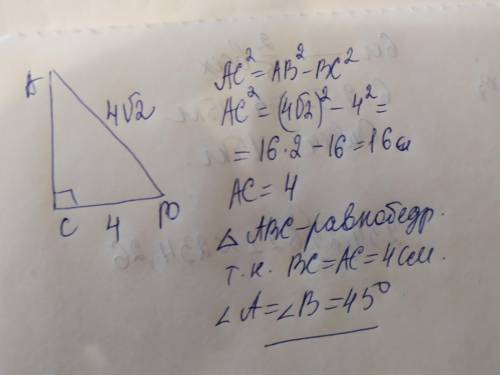 A
4√2
C
4
B
AC² = AB² − BC²
AC² = (4√2)² − 4² =
= 16·2 − 16 = 16 см
AC = 4
△ ABC – равнобедр.
т.к. BC = AC = 4 см.
∠A = ∠B = 45°